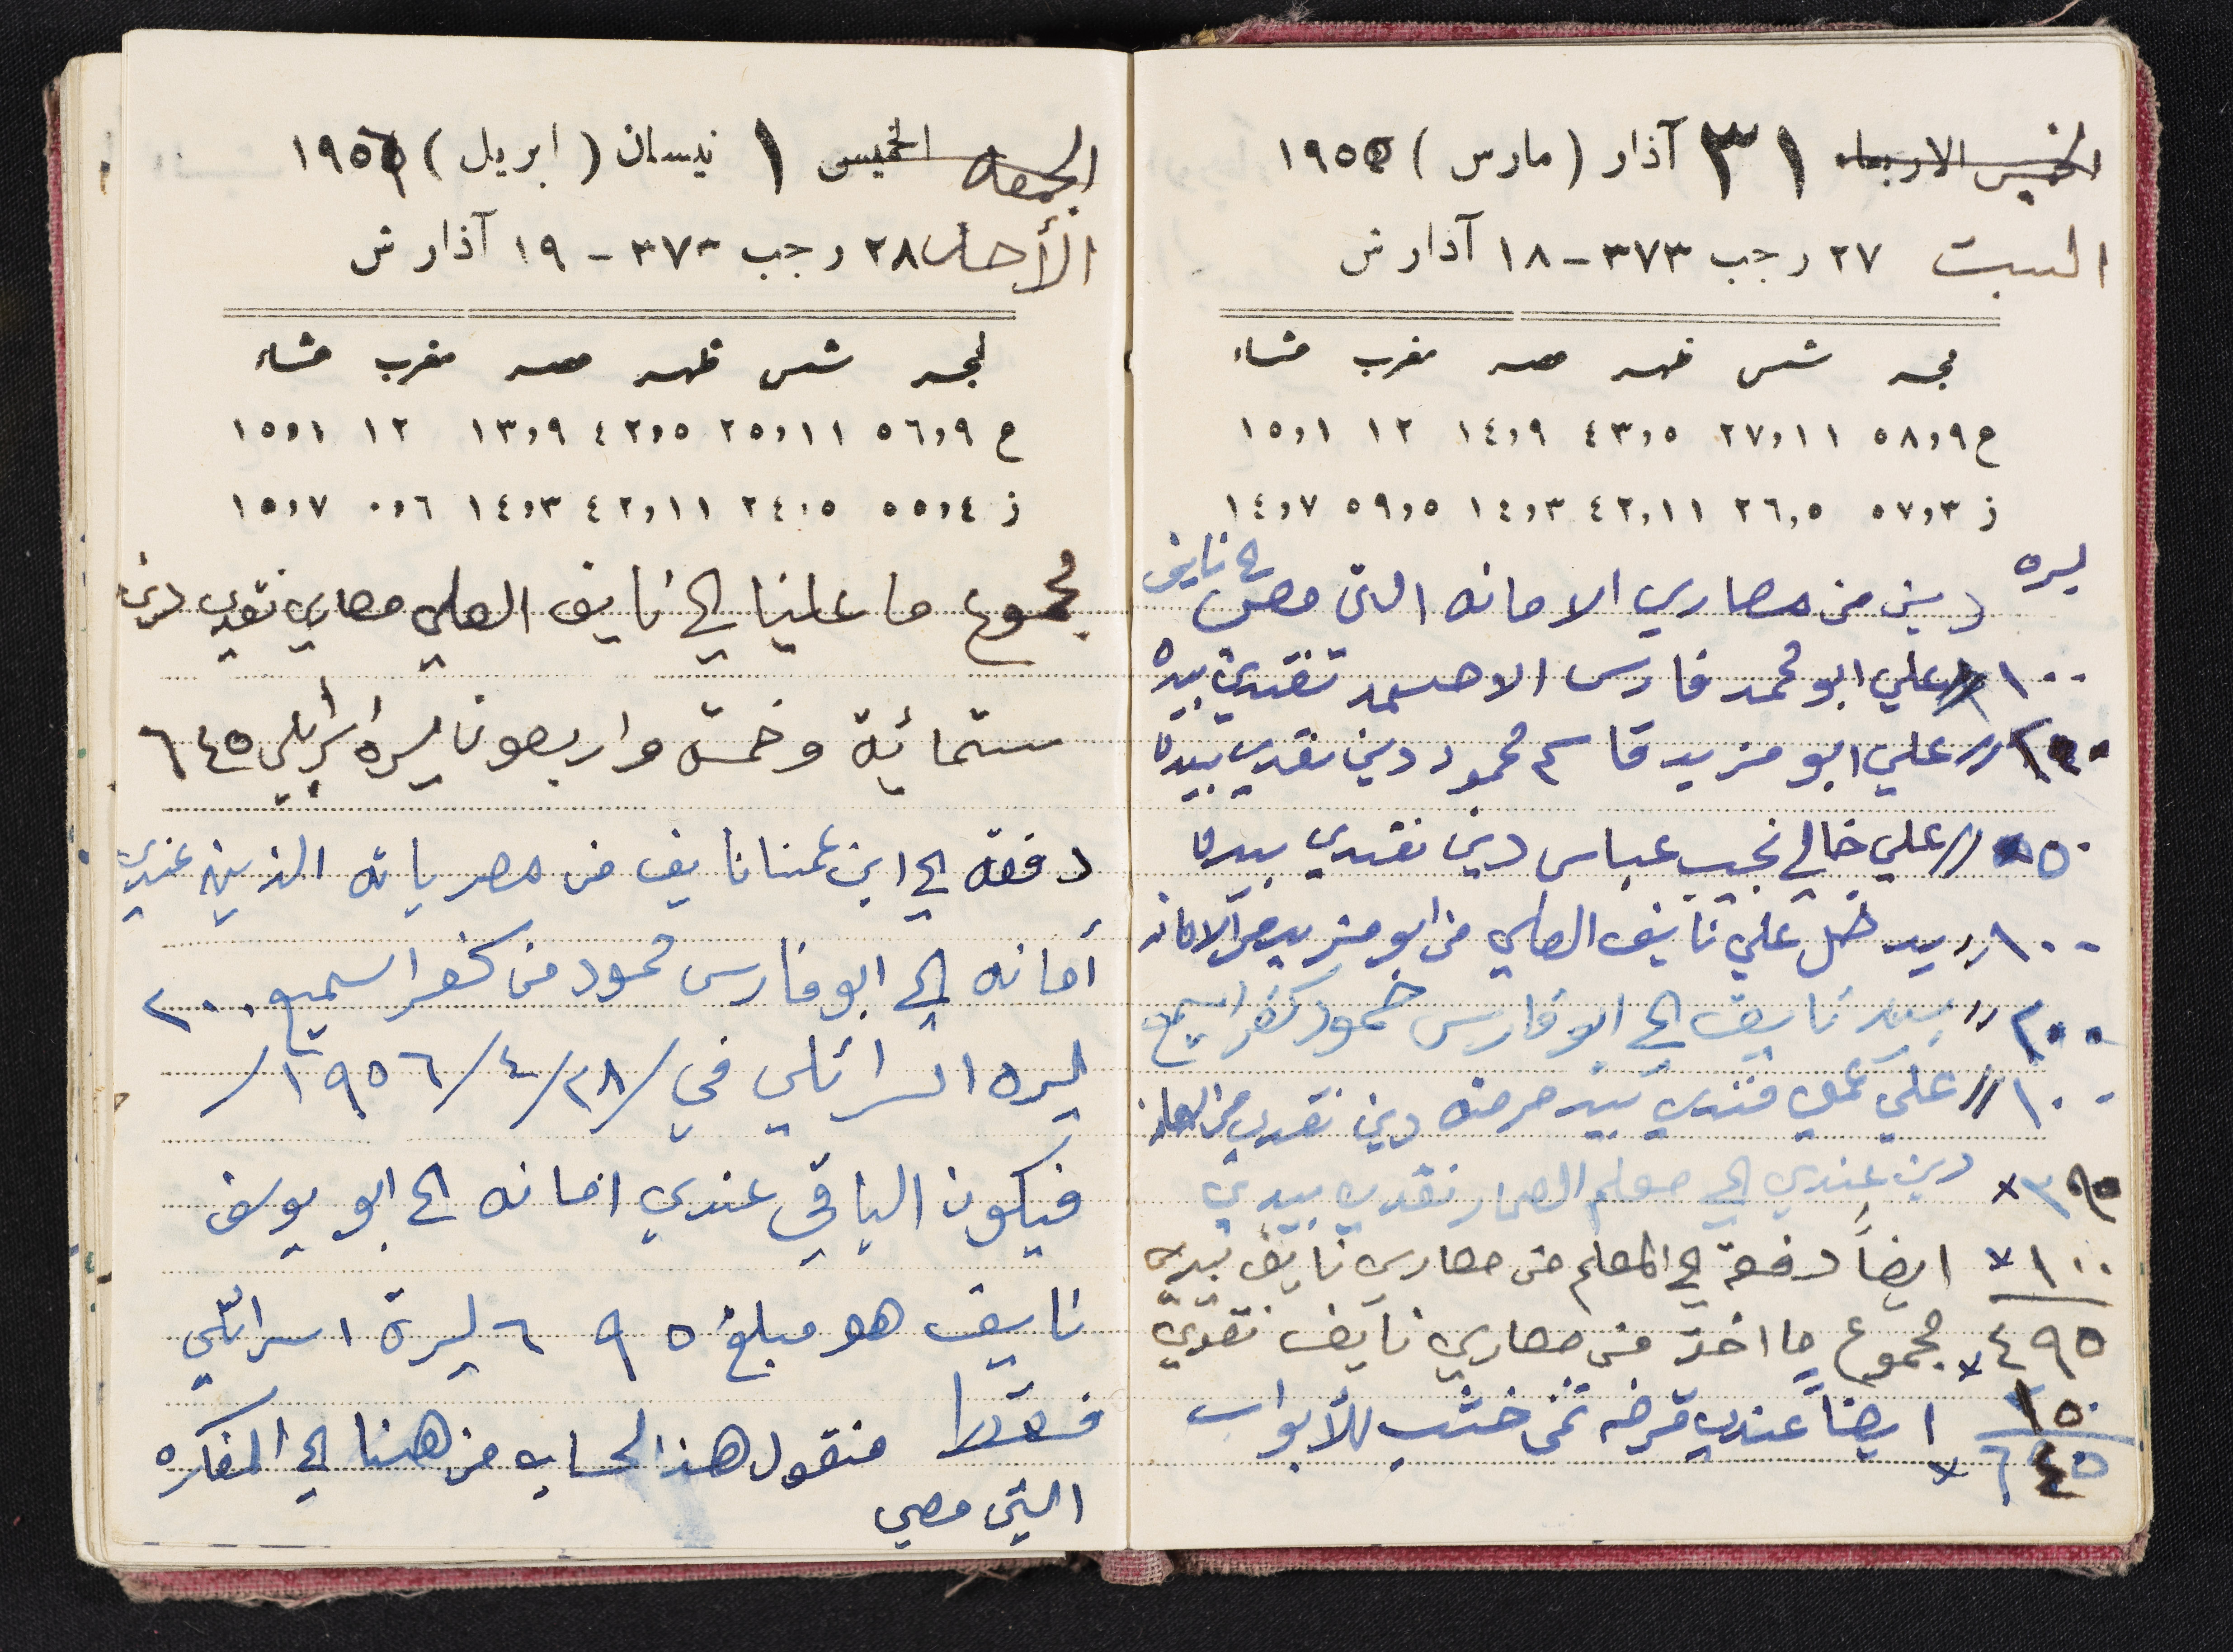 الخميس الاربعاء ٣١ آذار (مارس) ١٩٥٥
السبت ٢٧ رجب ٣٧٣ - ١٨ آذار ش
فجر شمس ظهر عصر مغرب عشاء
ع ٥٨,٩ ٢٧,١١ ٤٣,٥ ١٤,٩ ١٢ ١٥,١
ز ٥٧,٣ ٢٦,٥ ٤٢,١١ ١٤,٣ ٥٩,٥ ١٤,٧
ليره دين من مصاري الامانه التي معي الى نايف
١٠٠ علي ابو محمد فارس الاسمد نقدي بيده
٢٠٠ // علي ابو مزيد قاسم محمود دين نقدي بيده
٥٠ // علي خالي نجيب عباس دين نقدي بيده
١٠٠ // يدخل علي نايف العلي من ابو مزيد من الامانه
٢٠٠ // بيد نايف الى ابو فارس حمود كفر اسميع
١٠٠ // علي عمي فندي بيد مرمته دين نقدي من
٣٩٥ × دين عندي الى معلم العمار نقدي بيدي
١٠٠ × ايضاً دفعة الى المعلم من مصاري نايف بيدي
٤٩٥ × مجموع ما اخذ من مصاري نايف نقدي
١٥٠ ايضاً عندي قرضه ثمن خشب للأبواب
٦٤٥ ×
الجمعه الخميس ١ نيسان (ابريل) ١٩٥٦
الأحد ٢٨ رجب ٣٧٣ - ١٩ آذار ش
فجر شمس ظهر عصر مغرب عشاء
ع ٥٦,٩ ٢٥,١١ ٤٢,٥ ١٣,٩ ١٢ ١٥,١
ز ٥٥,٤ ٢٤,٥ ٤٢,١١ ١٤,٣ ٠,٦ ١٥,٧
مجموع ما علينا الى نايف العلي مصاري نقدي دين
ستمائة وخمسة واربعون ليره اسرائيلي ٦٤٥
دفعه الى ابن عمنا نايف من مصرياته الذين عندي
أمانه الى ابو فارس حمود من كفر اسميع ٢٠٠
ليره اسرائلي في /٢٨/٤/١٩٥٦/
فيكون الباقي عندي امانه الى ابو يوسف
نايف هو مبلغ ٦٩٥ ليرة اسرائلي
فقط منقول هذا الحساب من هنا الى المفكره
التي معي